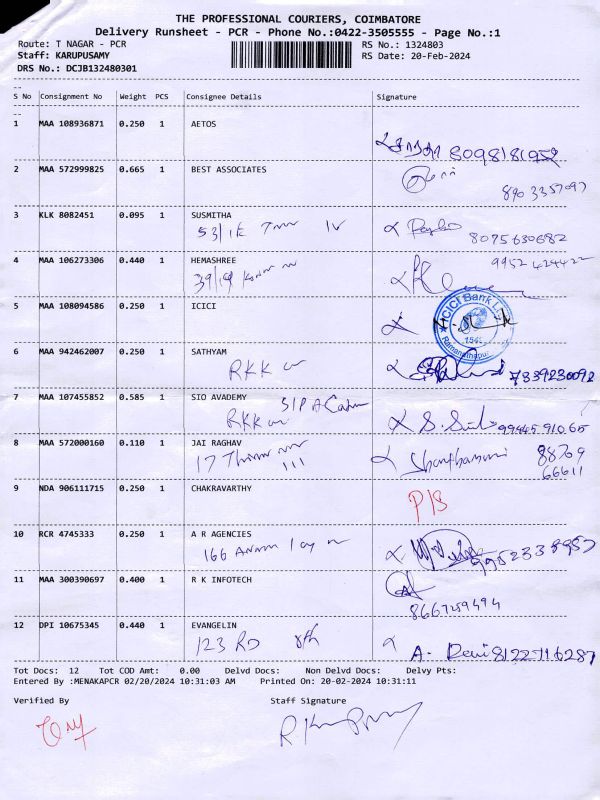 THE PROFESSIONAL COURIERS, COIMBATORE
Delivery Runsheet - PCR - Phone No.:0422-3505555 - Page No.:1
Route: T NAGAR - PCR RS No.: 1324803
Staff: KARUPUSAMY RS Date: 20-Feb-2024
DRS No.: DCJB132480301
S No Consignment No Weight PCS Consignee Details Signature
1 MAA 108936871 0.250 1 AETOS
8098181952
2 MAA 572999825 0.665 1 BEST ASSOCIATES
8903357097
3 KLK 8082451 0.095 1 SUSMITHA
53/1E IV 8075630682
4 MAA 106273306 0.440 1 HEMASHREE 9952424422
39/19
5 MAA 108094586 0.250 1 ICICI
ICICI Bank
Ramanathapuram
6 MAA 942462007 0.250 1 SATHYAM
RKK 7339230092
7 MAA 107455852 0.585 1 SIO AVADEMY SIPA
RKK 9944591065
8 MAA 572000160 0.110 1 JAI RAGHAV
17 III Shanthamani 88769
66611
9 NDA 906111715 0.250 1 CHAKRAVARTHY
P/S
10 RCR 4745333 0.250 1 A R AGENCIES
166 9952338957
11 MAA 300390697 0.400 1 R K INFOTECH
8667259494
12 DPI 10675345 0.440 1 EVANGELIN
123 RD A. Devi 8122716287
Tot Docs: 12 Tot COD Amt: 0.00 Delvd Docs: Non Delvd Docs: Delvy Pts:
Entered By :MENAKAPCR 02/20/2024 10:31:03 AM Printed On: 20-02-2024 10:31:11
Verified By Staff Signature